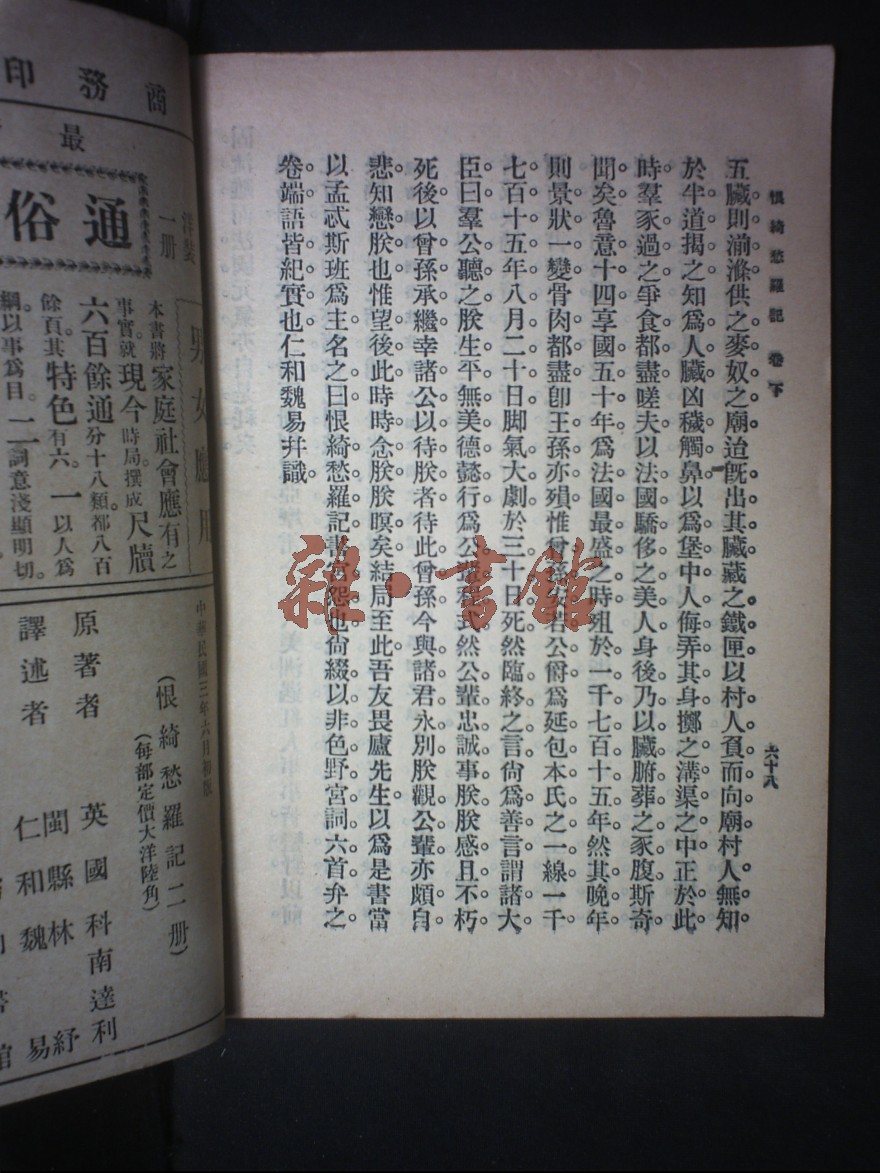 恨綺愁羅記 卷下
六十八
五臟則湔滌供之麥奴之廟迨旣出其臟藏之鐵匣以村人負而向廟村人無知。
於半道揭之知爲人臟凶穢觸鼻以爲堡中人侮弄其身擲之溝渠之中正於此
時羣豕過之爭食都盡嗟夫以法國驕侈之美人身後乃以臟腑葬之豕腹斯奇
聞矣魯意十四享國五十年爲法國最盛之時殂於一千七百十五年然其晚年
則景狀一變骨肉都盡卽王孫亦殞惟曾孫安若公爵爲延包本氏之一線一千
七百十五年八月二十日脚氣大劇於三十日死然臨終之言尙爲善言謂諸大
臣曰羣公聽之朕生平無美德懿行爲公輩程式然公輩忠誠事朕朕感且不朽
死後以曾孫承繼幸諸公以待朕者待此曾孫今與諸君永別朕觀公輩亦頗自
悲知戀朕也惟望後此時時念朕朕暝矣結局至此吾友畏廬先生以爲是書當
以孟忒斯班爲主名之曰恨綺愁羅記書宮怨也尙綴以非色野宮詞六首弁之
卷端語皆紀實也仁和魏易幷識
雜·書館
商務印
最
通俗
洋裝
一册
男女應用
本書將家庭社會應有之
事實就現今時局撰成尺牘
六百餘通分十八類都八百
餘頁其特色有六。一以人爲
綱以事爲目。二詞意淺顯明切。
中華民國三年六月初版
(恨綺愁羅記二册)
(每部定價大洋陸角)
原著者 英國科南達利
譯述者 閩縣林紓
仁和魏易
館